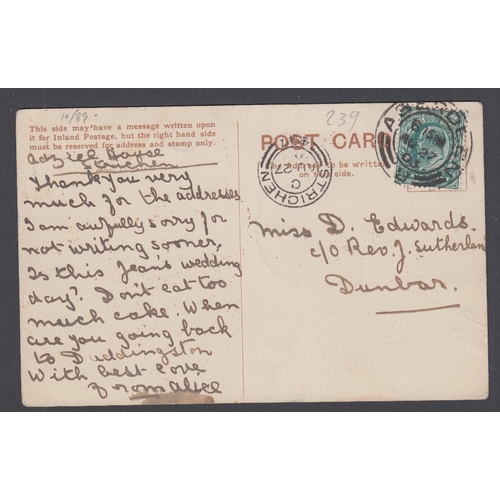 10/89.
239
This side may have a message written upon
it for Inland Postage, but the right hand side
must be reserved for address and stamp only.
POST CARD
The address to be written
on this side.
House
Strichen
Thank you very
much for the addresses
I am awfully sorry for
not writing sooner,
Is this Jean's wedding
day? Don't eat too
much cake. When
are you going back
to Duddingston
With best love
from Alice
STRICHEN
C
AU 27
ABERDEEN
Miss D. Edwards.
c/o Rev. J. Sutherland
Dunbar.